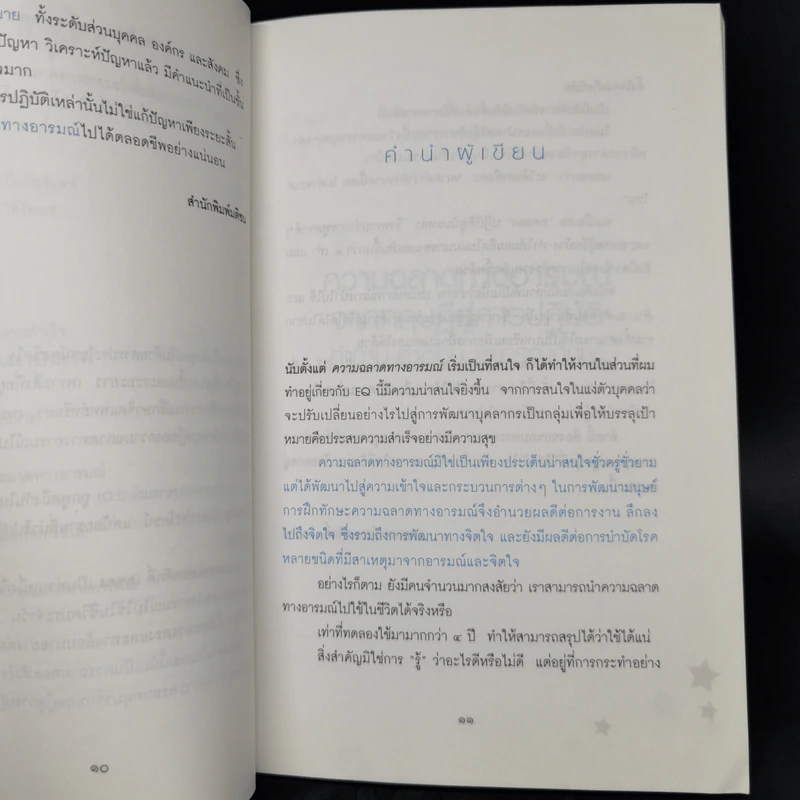 บาย ทั้งระดับส่วนบุคคล องค์กร และสังคม ซึ่ง
ปัญหา วิเคราะห์ปัญหาแล้ว มีคำแนะนำที่เป็นขั้น
มาก
รปฏิบัติเหล่านั้นไม่ใช่แก้ปัญหาเพียงระยะสั้น
ทางอารมณ์ไปได้ตลอดชีพอย่างแน่นอน
สำนักพิมพ์มติชน
๑๐
คำนำผู้เขียน
นับตั้งแต่ ความฉลาดทางอารมณ์ เริ่มเป็นที่สนใจ ก็ได้ทำให้งานในส่วนที่ผม
ทำอยู่เกี่ยวกับ EQ นี้มีความน่าสนใจยิ่งขึ้น จากการสนใจในแง่ตัวบุคคลว่า
จะปรับเปลี่ยนอย่างไรไปสู่การพัฒนาบุคลากรเป็นกลุ่มเพื่อให้บรรลุเป้า
หมายคือประสบความสำเร็จอย่างมีความสุข
ความฉลาดทางอารมณ์มิใช่เป็นเพียงประเด็นน่าสนใจชั่วครู่ชั่วยาม
แต่ได้พัฒนาไปสู่ความเข้าใจและกระบวนการต่างๆ ในการพัฒนามนุษย์
การฝึกทักษะความฉลาดทางอารมณ์จึงอำนวยผลดีต่อการงาน ลึกลง
ไปถึงจิตใจ ซึ่งรวมถึงการพัฒนาทางจิตใจ และยังมีผลดีต่อการบำบัดโรค
หลายชนิดที่มีสาเหตุมาจากอารมณ์และจิตใจ
อย่างไรก็ตาม ยังมีคนจำนวนมากสงสัยว่า เราสามารถนำความฉลาด
ทางอารมณ์ไปใช้ในชีวิตได้จริงหรือ
เท่าที่ทดลองใช้มามากกว่า ๔ ปี ทำให้สามารถสรุปได้ว่าใช้ได้แน่
สิ่งสำคัญมิใช่การ "รู้" ว่าอะไรดีหรือไม่ดี แต่อยู่ที่การกระทำอย่าง
๑๑